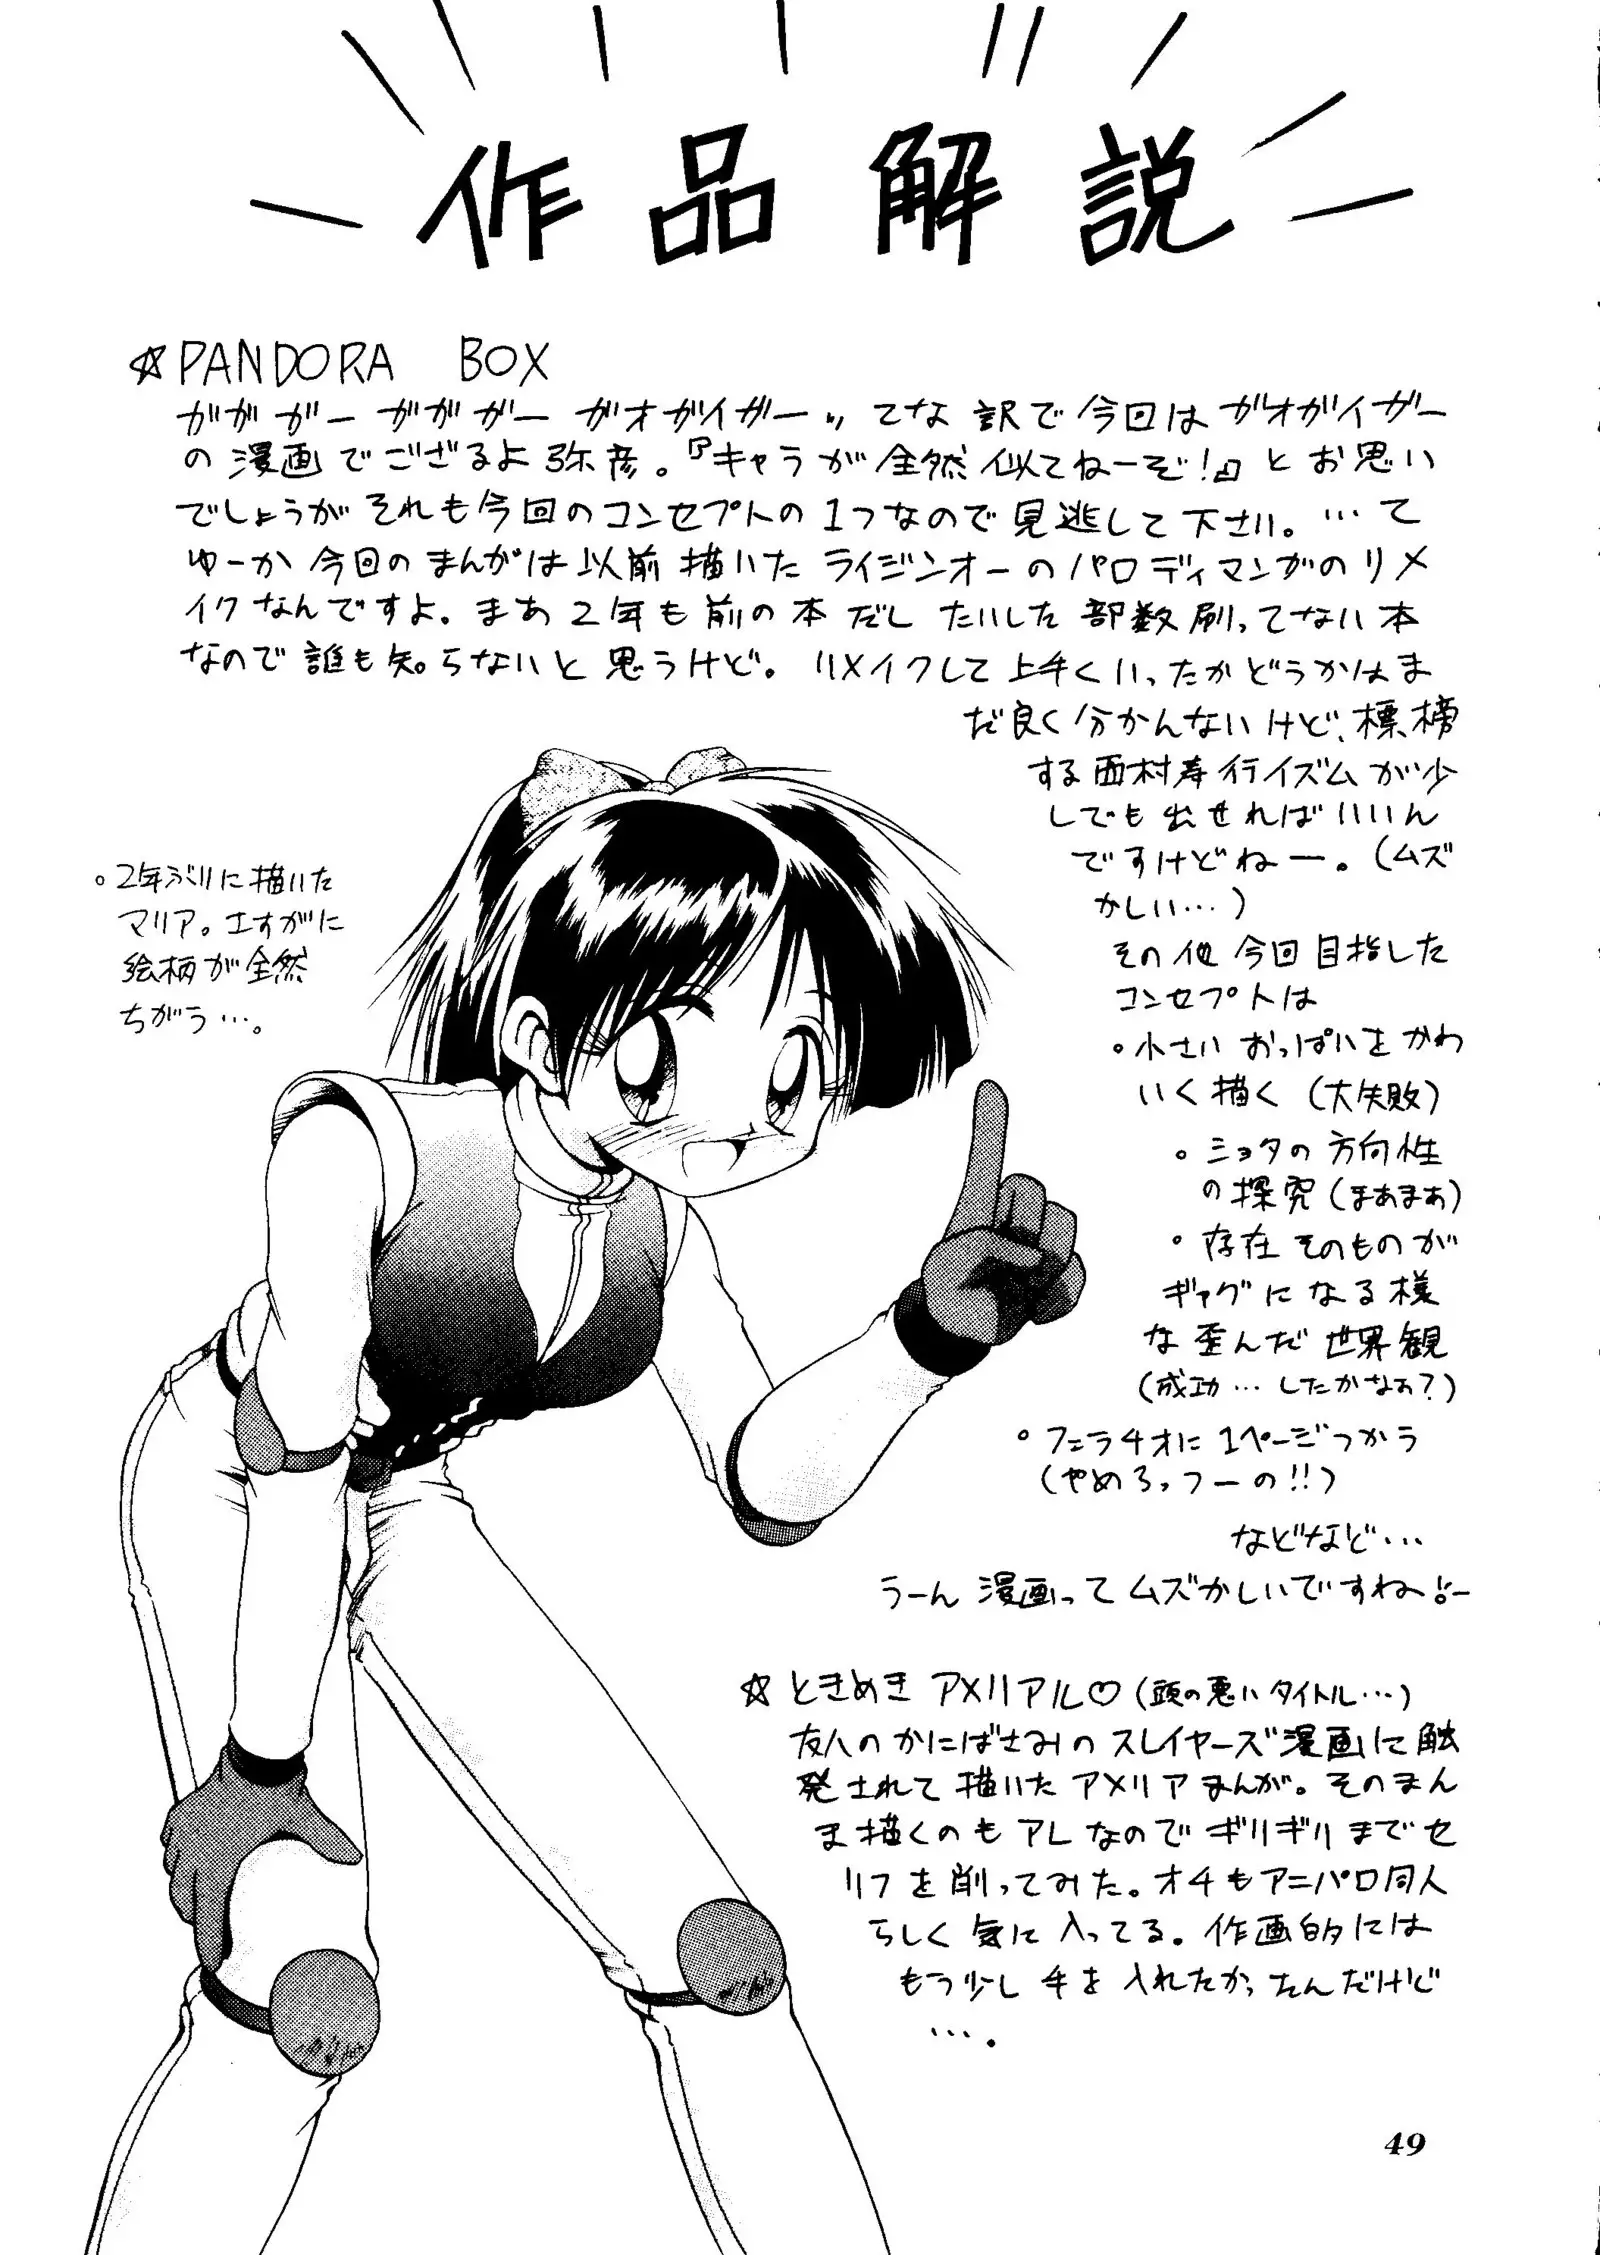 作品解説
☆PANDORA BOX
ガガガーガガガーガオガイガーッてな訳で今回はガオガイガー
の漫画でござるよ弥彦。『キャラが全然似てねーぞ!』とお思い
でしょうがそれも今回のコンセプトの1つなので見逃して下さい。…て
ゆーか今回のまんがは以前描いたライジンオーのパロディマンガのリメ
イクなんですよ。まあ2年も前の本だしたいした部数刷ってない本
なので誰も知らないと思うけど。リメイクして上手くいったかどうかはま
だ良く分かんないけど、標榜
する西村寿行イズムが少
しでも出せればいいん
ですけどねー。(ムズ
かしい…)
その他今回目指した
コンセプトは
・小さいおっぱいをかわ
いく描く(大失敗)
・ショタの方向性
の探究(まあまあ)
・存在そのものが
ギャグになる様
な歪んだ世界観
(成功…したかなぁ?)
・フェラチオに1ページつかう
(やめろっつーの!!)
などなど…
うーん漫画ってムズかしいですねー!
・2年ぶりに描いた
マリア。さすがに
絵柄が全然
ちがう…。
☆ときめきアメリアル♡(頭の悪いタイトル…)
友人のかにばさみのスレイヤーズ漫画に触
発されて描いたアメリアまんが。そのまん
ま描くのもアレなのでギリギリまでセ
リフを削ってみた。オチもアニパロ同人
らしく気に入ってる。作画的には
もう少し手を入れたかったんだけど
…。
49